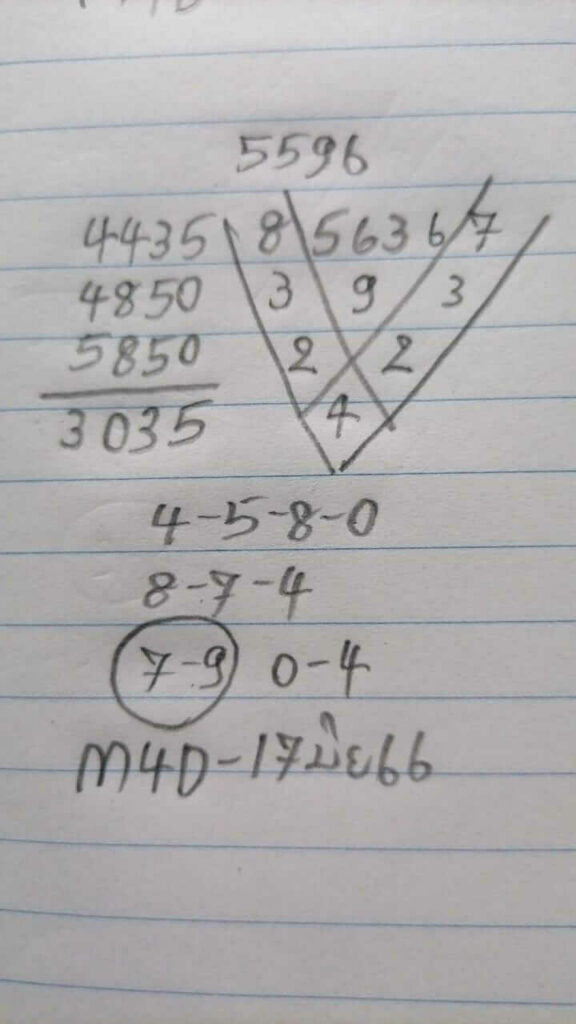 5596
4435 8 5636 7
4850 3 9 3
5850 2 2
3035 4
4-5-8-0
8-7-4
7-9 0-4
M4D-17มิย66